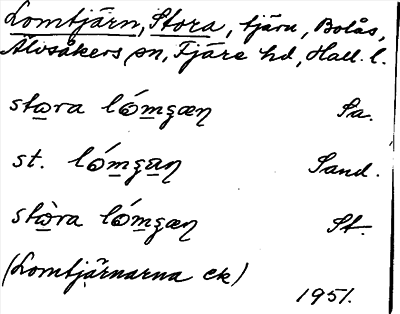 Lomtjärn, Stora, tjärn, Bolås,
Älvsåkers sn, Fjäre hd, Hall. l.
stωra lómʂæɳ Sa.
st. lómʂaɳ Sand.
stὼra lómʂæɳ St.
(Lomtjärnarna ek)
1951.